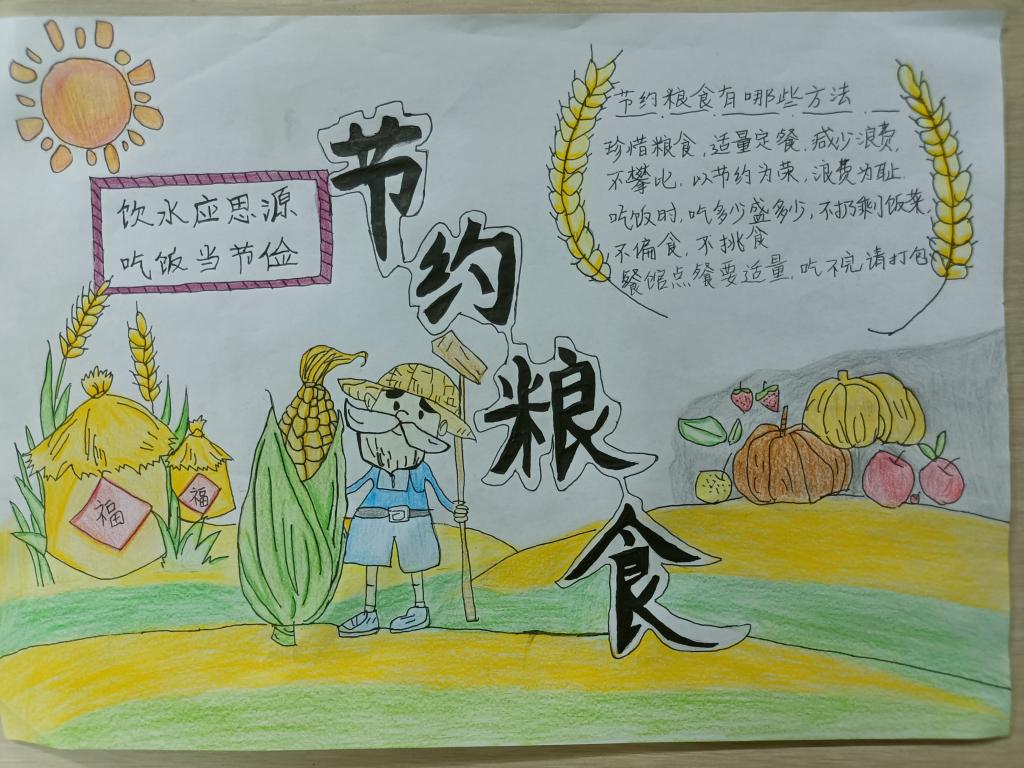 饮水应思源
吃饭当节俭
节约粮食
节约粮食有哪些方法
珍惜粮食,适量定餐,减少浪费,
不攀比,以节约为荣,浪费为耻.
吃饭时,吃多少盛多少,不扔剩饭菜,
不偏食,不挑食
餐馆点餐要适量,吃不完请打包
福
福